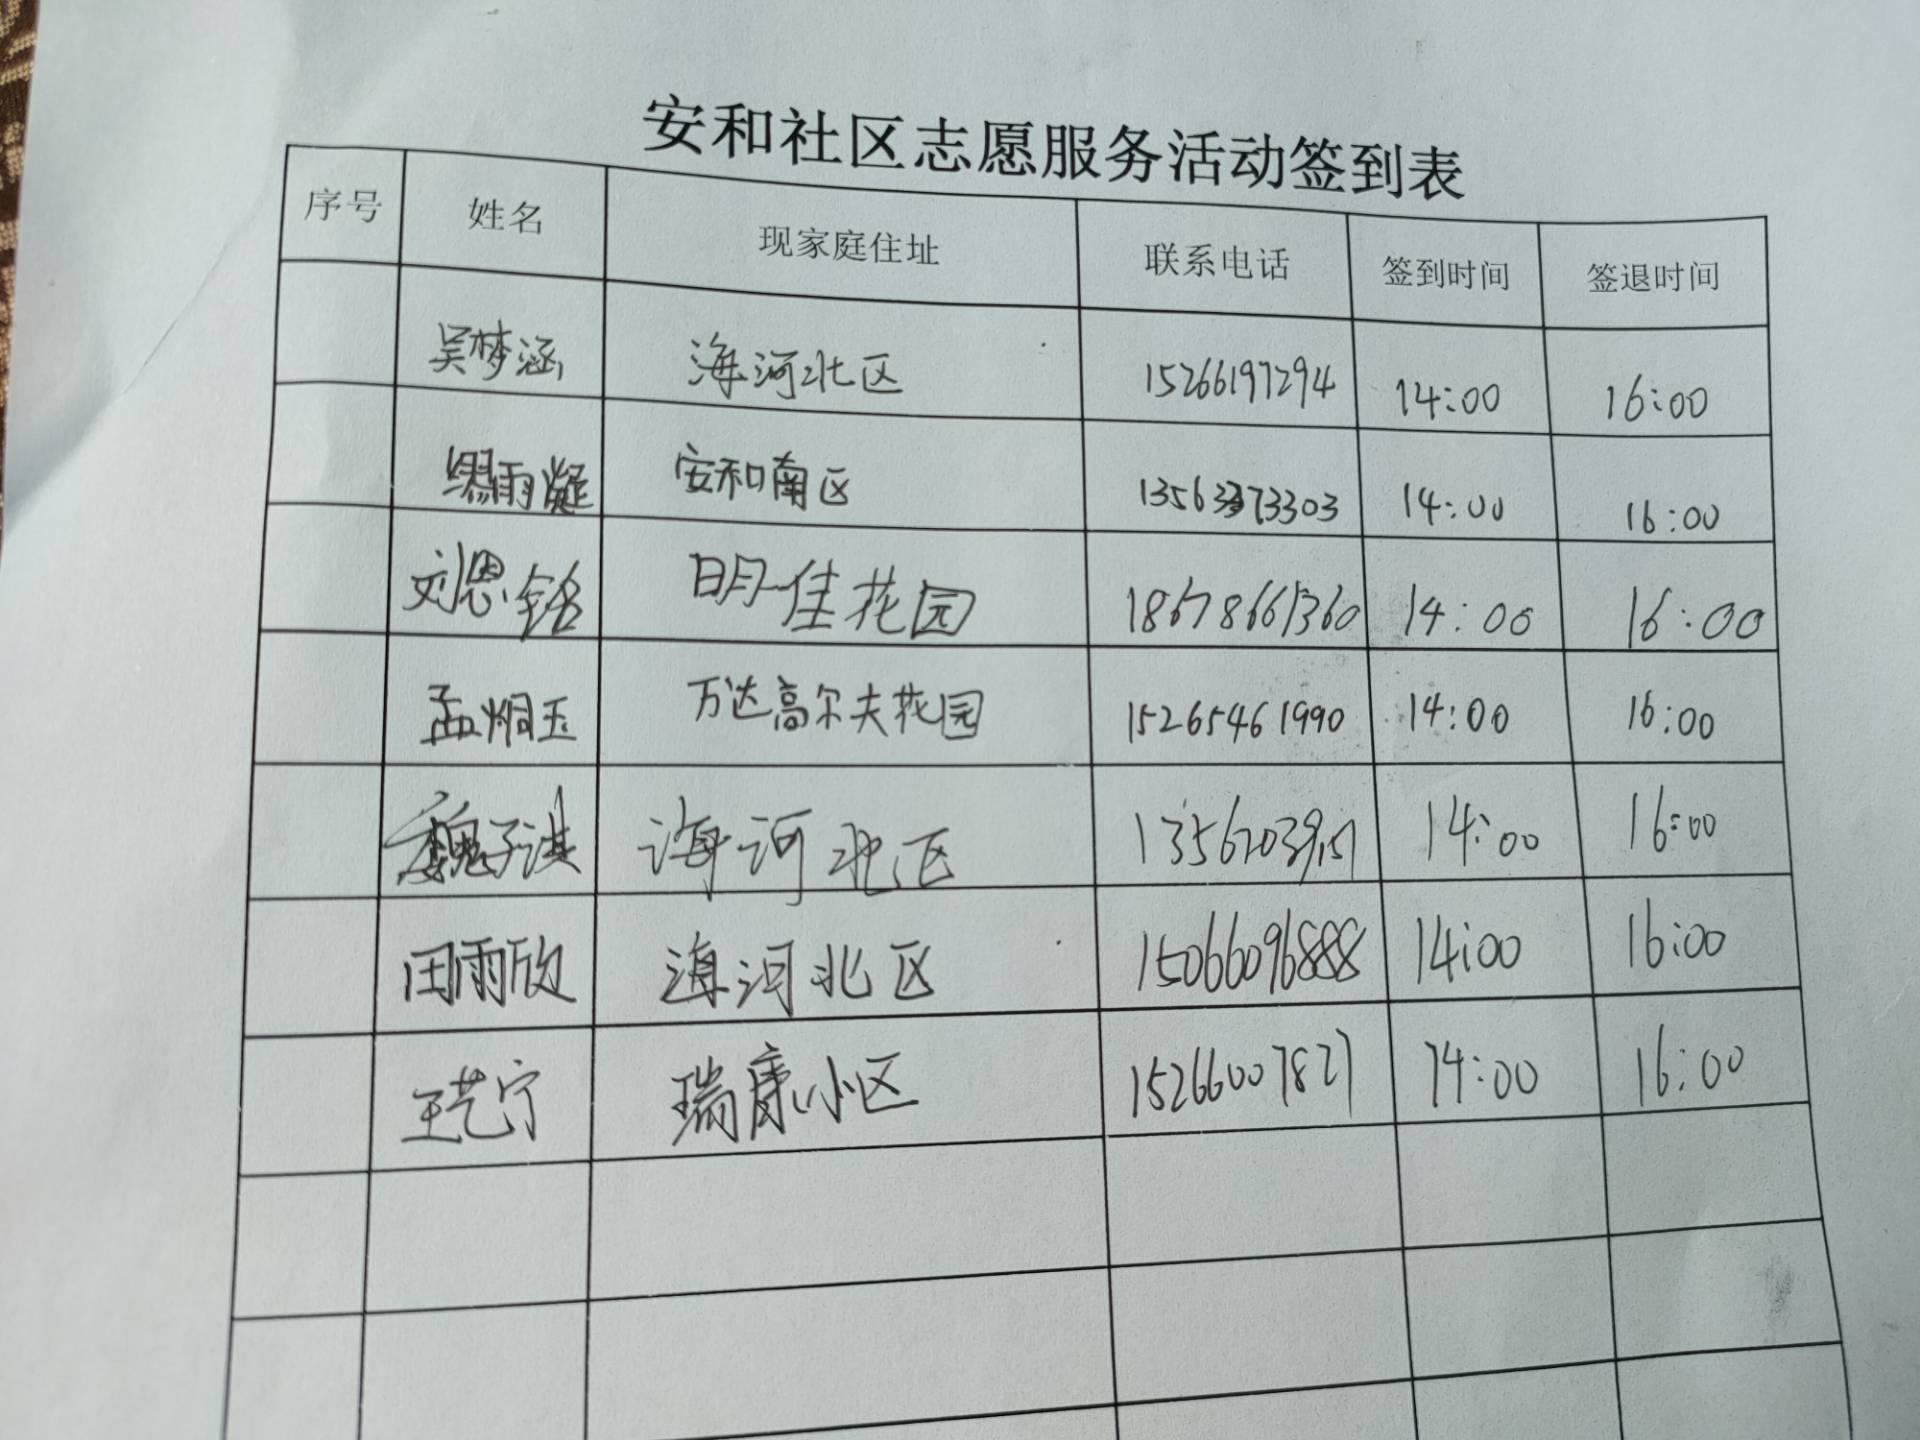 安和社区志愿服务活动签到表
序号 姓名 现家庭住址 联系电话 签到时间 签退时间
吴梦涵 海河北区 15266197294 14:00 16:00
缪雨凝 安和南区 14:00 16:00
刘恩铭 明佳花园 18678661360 14:00 16:00
孟炯玉 万达高尔夫花园 15265461990 14:00 16:00
魏子淇 海河北区 14:00 16:00
田雨欣 海河北区 15066096888 14:00 16:00
王艺宁 瑞康小区 15266007827 14:00 16:00